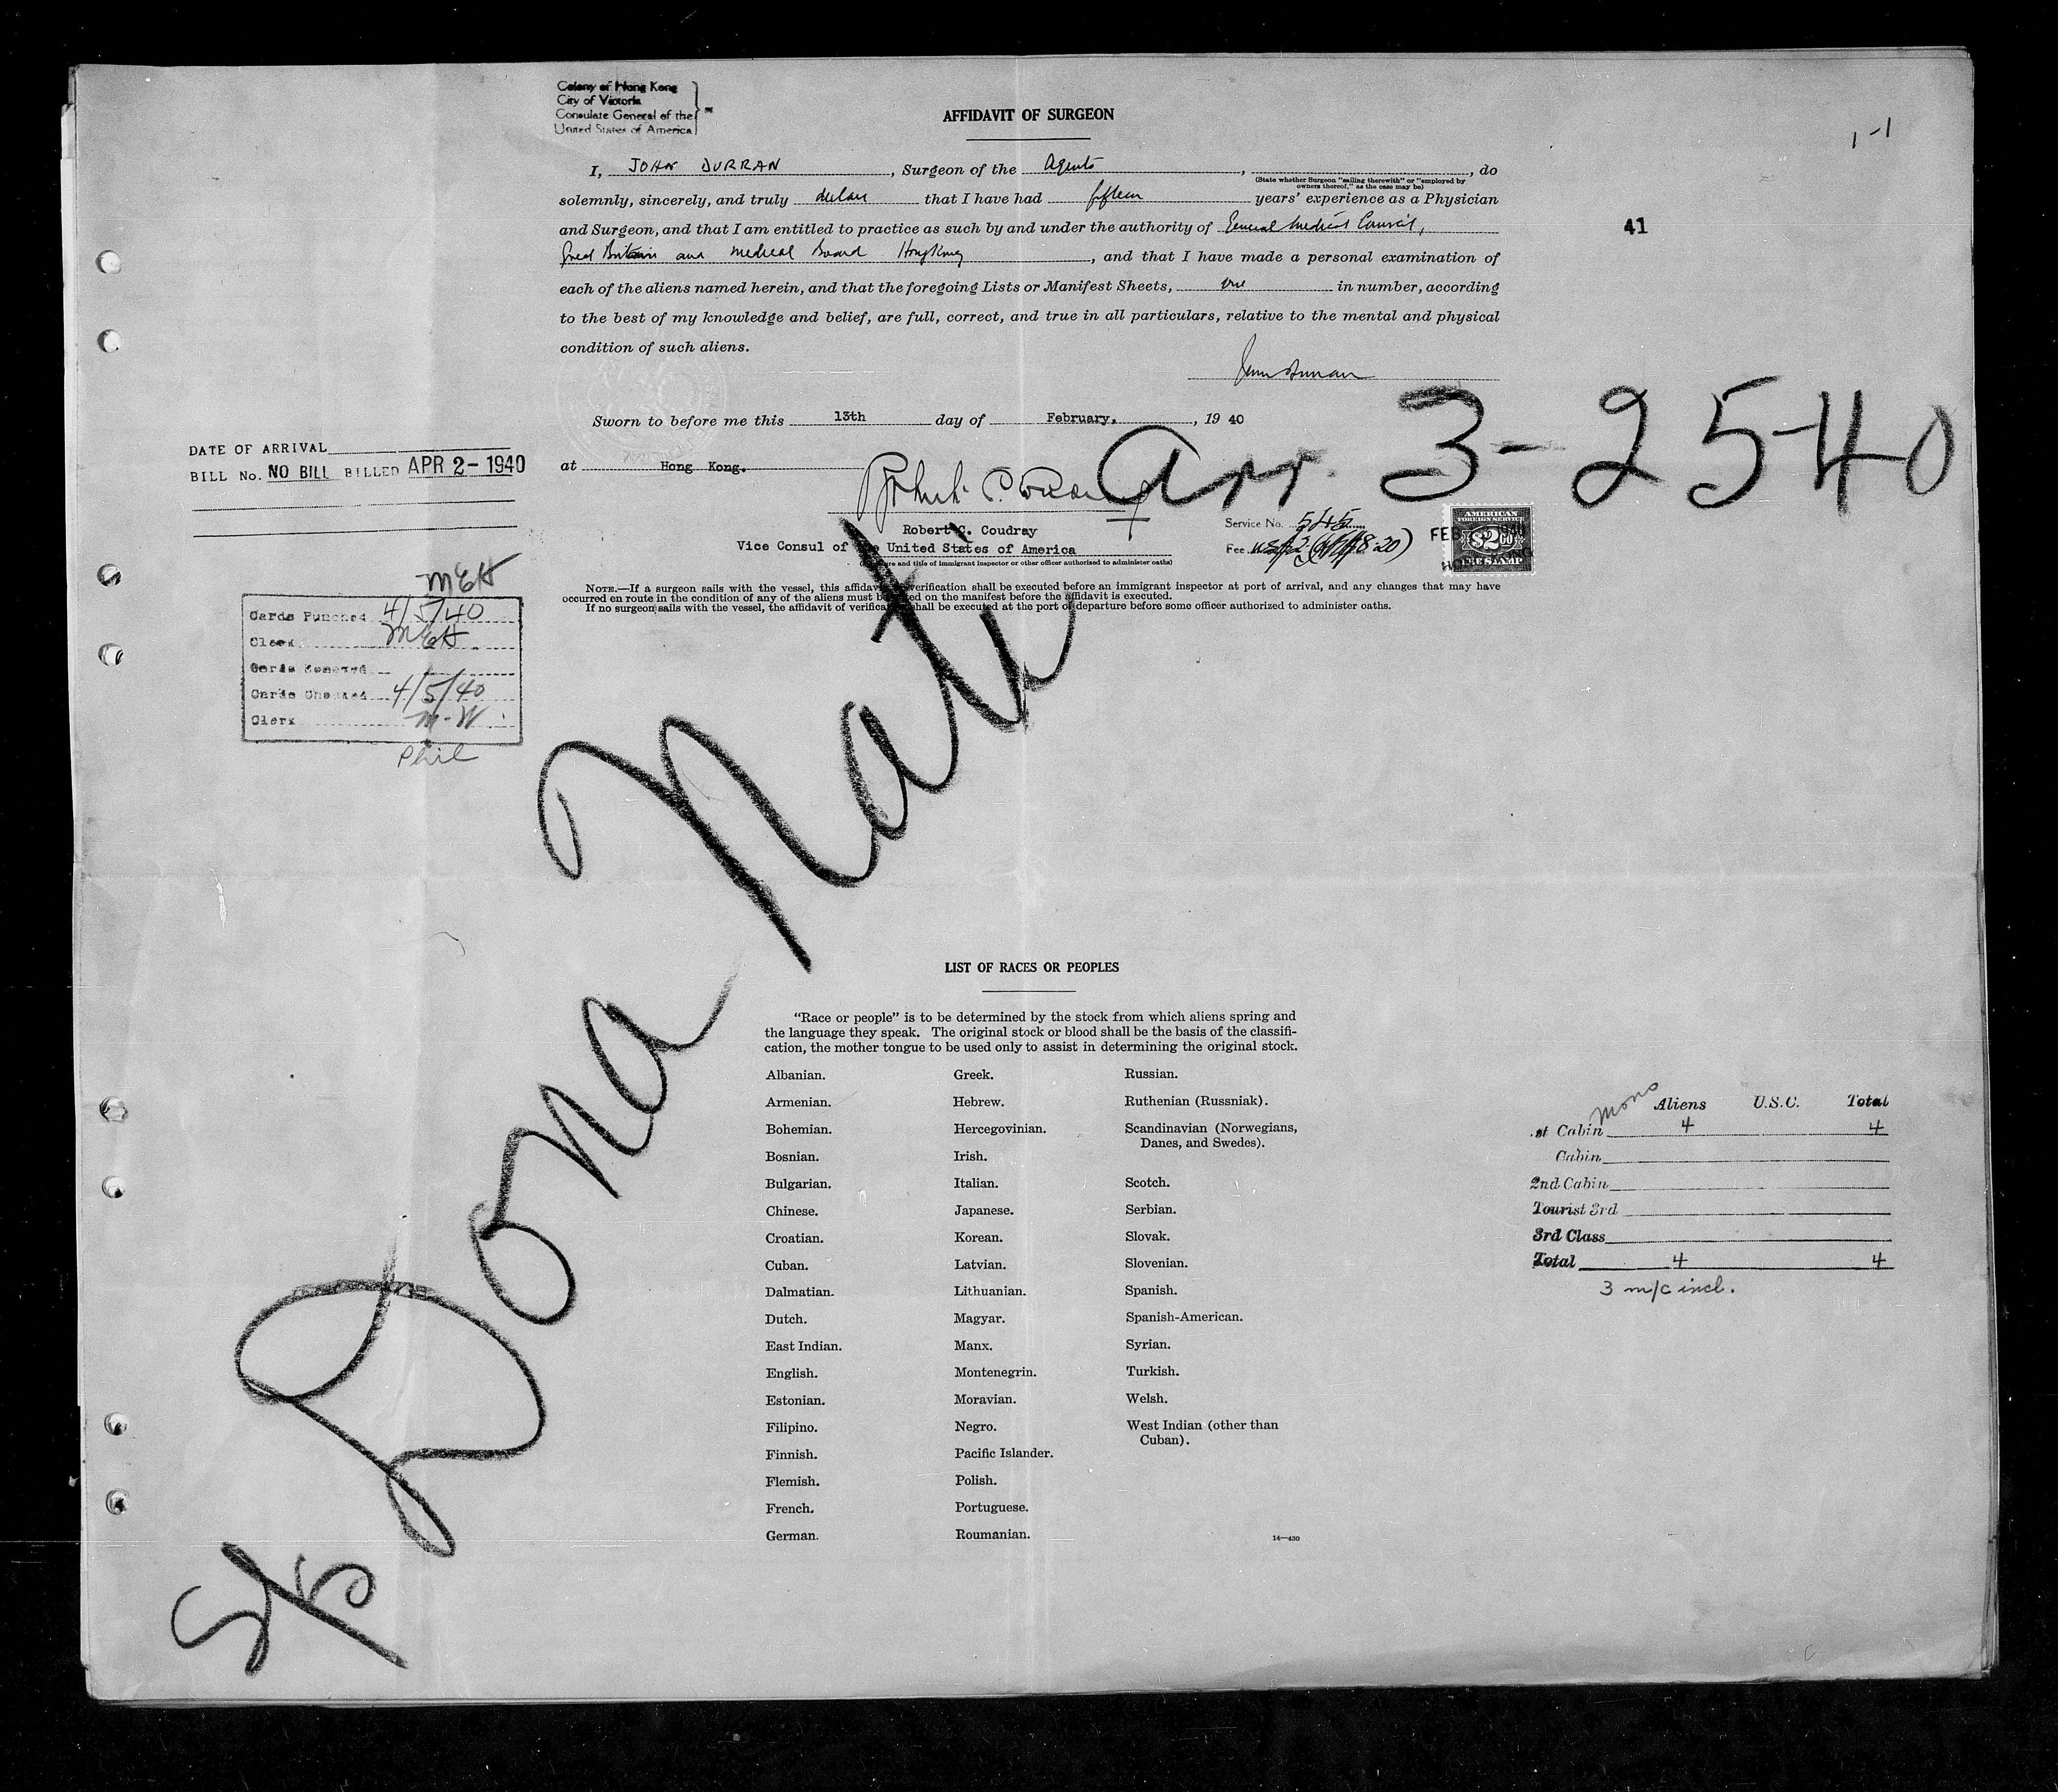 Colony of Hong Kong
City of Victoria
Consulate General of the
United States of America
AFFIDAVIT OF SURGEON
1-1
I, JOHN DURRAN, Surgeon of the Agents, , do
(State whether Surgeon "sailing therewith" or "employed by
owners thereof," as the case may be)
solemnly, sincerely, and truly declare that I have had fifteen years' experience as a Physician
and Surgeon, and that I am entitled to practice as such by and under the authority of General Medical Council,
41
Great Britain and Medical Board Hongkong, and that I have made a personal examination of
each of the aliens named herein, and that the foregoing Lists or Manifest Sheets, one in number, according
to the best of my knowledge and belief, are full, correct, and true in all particulars, relative to the mental and physical
condition of such aliens.
Sworn to before me this 13th day of February, , 19 40
at Hong Kong.
Arr. 3-25-40
DATE OF ARRIVAL
BILL No. NO BILL BILLED APR 2-1940
Robert C. Coudray
Vice Consul of the United States of America
(Signature and title of immigrant inspector or other officer authorized to administer oaths)
Service No. 545
Fee
AMERICAN
FOREIGN SERVICE
$2.00
FEE STAMP
FEB 1940
HONG KONG
NOTE.—If a surgeon sails with the vessel, this affidavit of verification shall be executed before an immigrant inspector at port of arrival, and any changes that may have
occurred en route in the condition of any of the aliens must be noted on the manifest before the affidavit is executed.
If no surgeon sails with the vessel, the affidavit of verification shall be executed at the port of departure before some officer authorized to administer oaths.
MEH
Cards Punched 4/5/40
Clerk MEH
Cards Checked 4/5/40
Clerk M-W
Phil
S/S Dona Nati
LIST OF RACES OR PEOPLES
"Race or people" is to be determined by the stock from which aliens spring and
the language they speak. The original stock or blood shall be the basis of the classifi-
cation, the mother tongue to be used only to assist in determining the original stock.
Albanian.
Armenian.
Bohemian.
Bosnian.
Bulgarian.
Chinese.
Croatian.
Cuban.
Dalmatian.
Dutch.
East Indian.
English.
Estonian.
Filipino.
Finnish.
Flemish.
French.
German.
Greek.
Hebrew.
Hercegovinian.
Irish.
Italian.
Japanese.
Korean.
Latvian.
Lithuanian.
Magyar.
Manx.
Montenegrin.
Moravian.
Negro.
Pacific Islander.
Polish.
Portuguese.
Roumanian.
Russian.
Ruthenian (Russniak).
Scandinavian (Norwegians,
Danes, and Swedes).
Scotch.
Serbian.
Slovak.
Slovenian.
Spanish.
Spanish-American.
Syrian.
Turkish.
Welsh.
West Indian (other than
Cuban).
14—430
Mono
Aliens U.S.C. Total
st Cabin 4 4
Cabin
2nd Cabin
Tourist 3rd
3rd Class
Total 4 4
3 m/c incl.